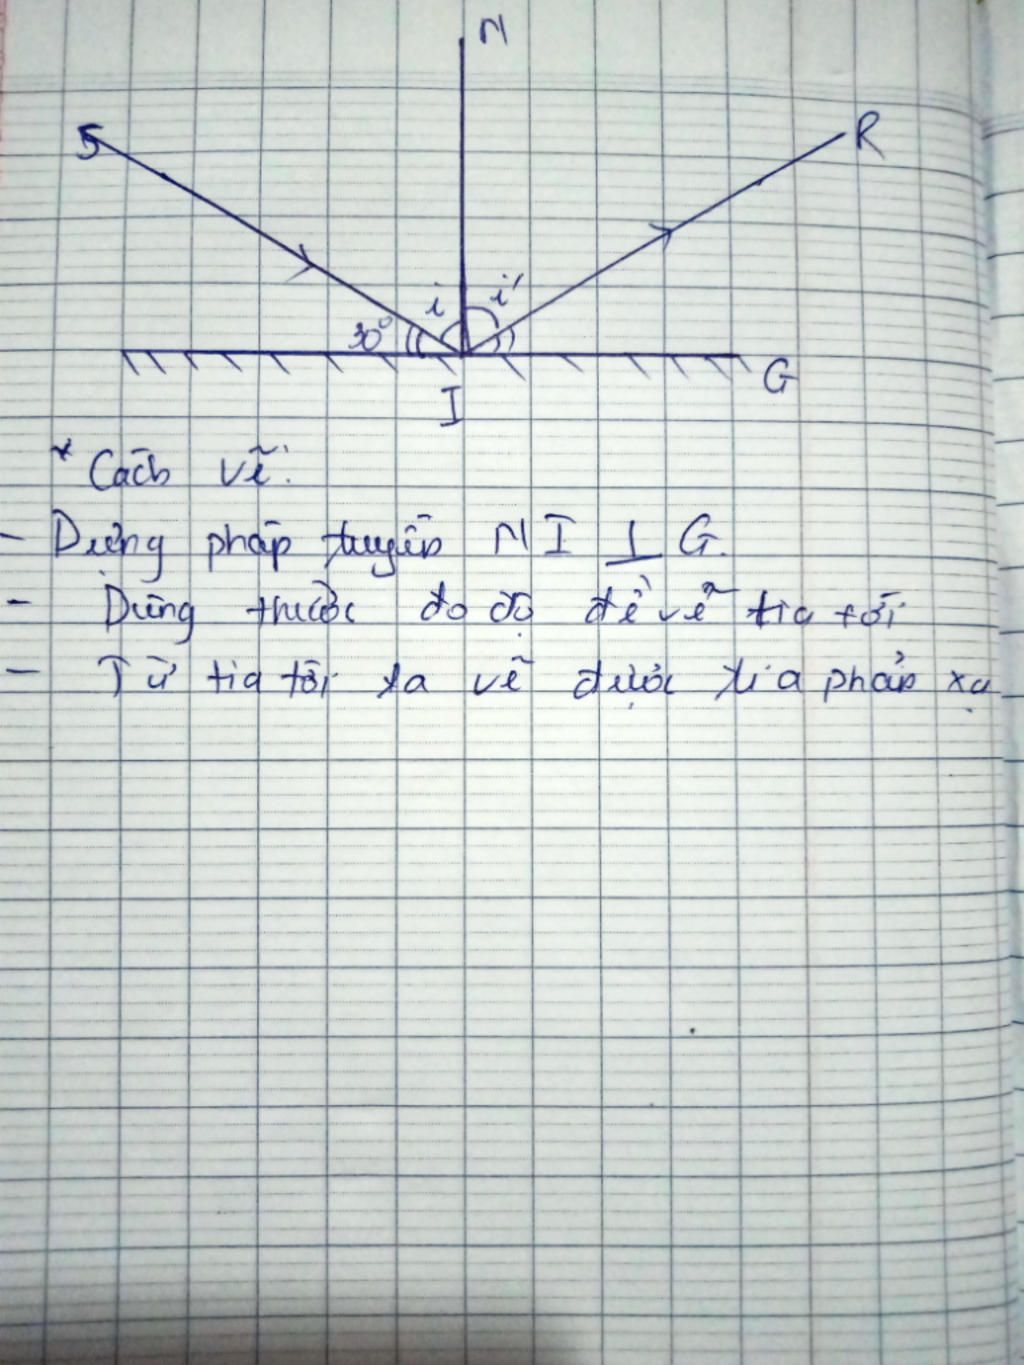 N
S
R
i i'
30°
G
I
* Cách vẽ:
- Dựng pháp tuyến NI ⊥ G.
- Dùng thước đo độ để vẽ tia tới
- Từ tia tới ta vẽ được tia phản xạ